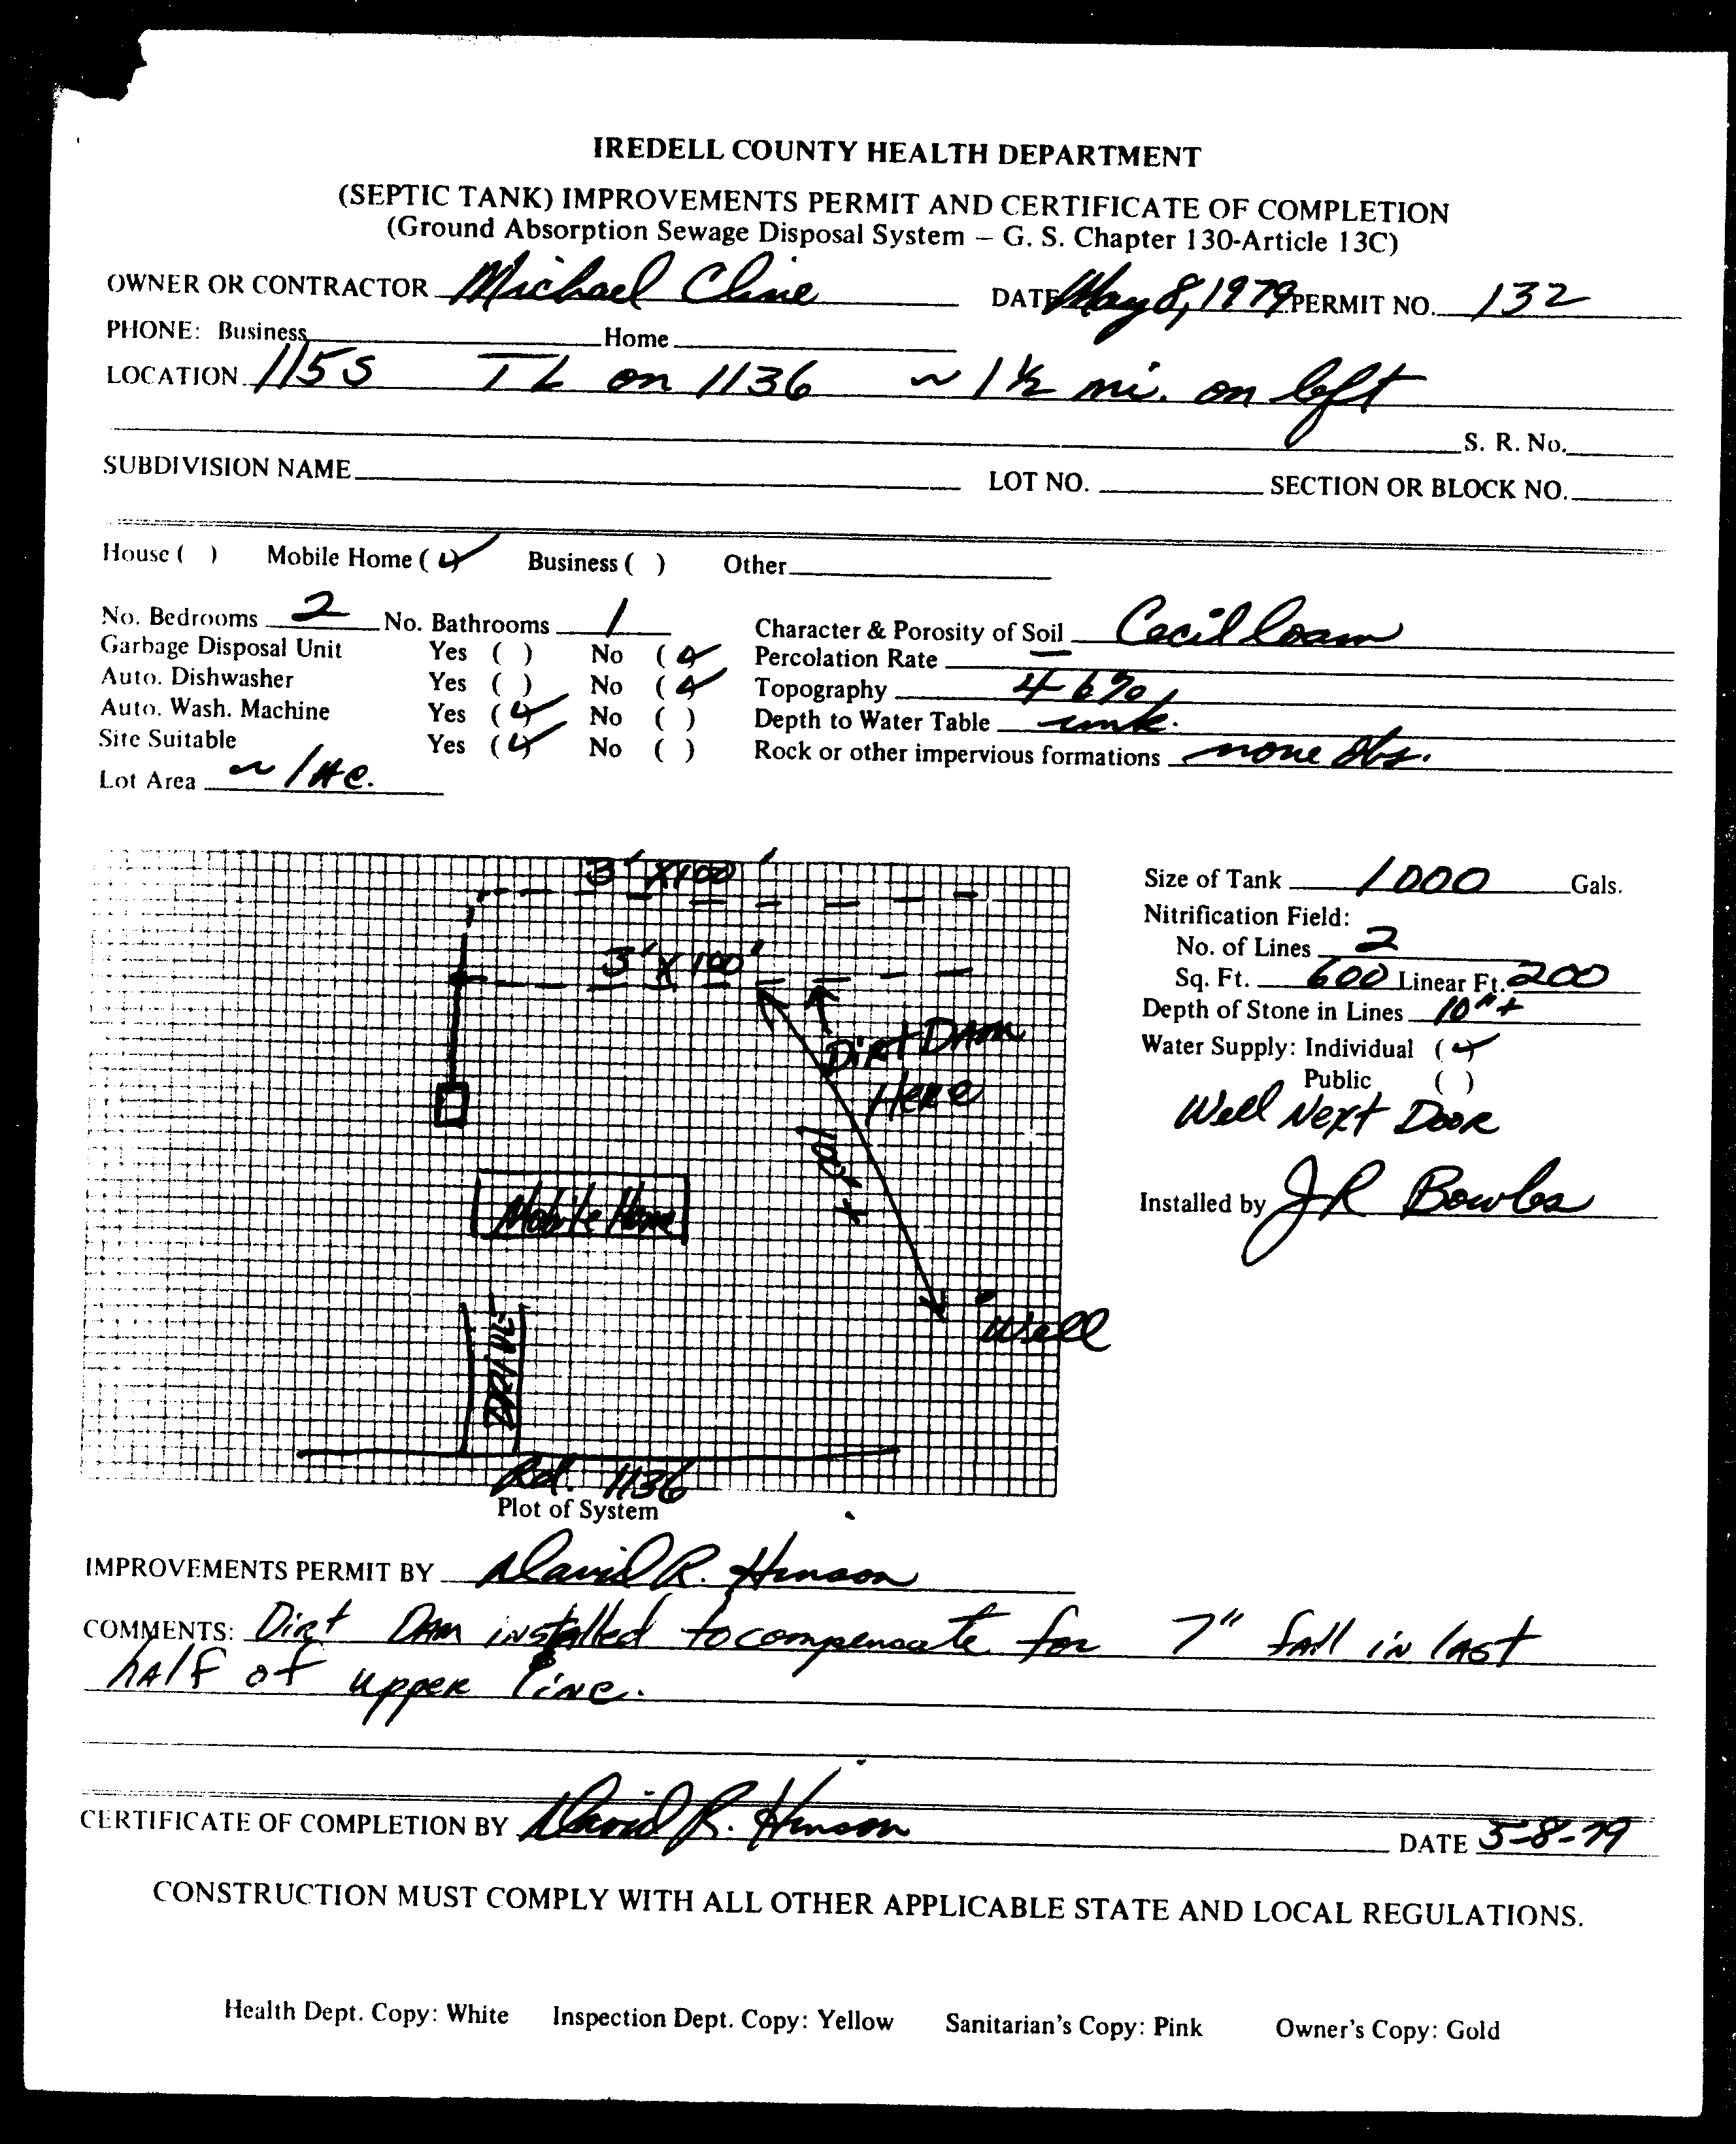 IREDELL COUNTY HEALTH DEPARTMENT
(SEPTIC TANK) IMPROVEMENTS PERMIT AND CERTIFICATE OF COMPLETION
(Ground Absorption Sewage Disposal System – G. S. Chapter 130-Article 13C)
OWNER OR CONTRACTOR Michael Cline DATE May 8, 1979 PERMIT NO. 132
PHONE: Business Home
LOCATION 115S TL on 1136 ~ 1 ½ mi. on left
S. R. No.
SUBDIVISION NAME LOT NO. SECTION OR BLOCK NO.
House ( ) Mobile Home (✓) Business ( ) Other
No. Bedrooms 2 No. Bathrooms 1 Character & Porosity of Soil Cecil loam
Garbage Disposal Unit Yes ( ) No (✓) Percolation Rate —
Auto. Dishwasher Yes ( ) No (✓) Topography 4-6%
Auto. Wash. Machine Yes (✓) No ( ) Depth to Water Table unk.
Site Suitable Yes (✓) No ( ) Rock or other impervious formations none obs.
Lot Area ~ 1 Ac.
3' X 100'
3' X 100'
Dirt DAM
Here
100'+
Mobile Home
Well
DRIVE
Rd. 1136
Plot of System
Size of Tank 1000 Gals.
Nitrification Field:
No. of Lines 2
Sq. Ft. 600 Linear Ft. 200
Depth of Stone in Lines 10"+
Water Supply: Individual (✓)
Public ( )
Well Next Door
Installed by JR Bowles
IMPROVEMENTS PERMIT BY David R. Hinson
COMMENTS: Dirt DAM installed to compensate for 7" fall in last
half of upper line.
CERTIFICATE OF COMPLETION BY David R. Hinson DATE 5-8-79
CONSTRUCTION MUST COMPLY WITH ALL OTHER APPLICABLE STATE AND LOCAL REGULATIONS.
Health Dept. Copy: White Inspection Dept. Copy: Yellow Sanitarian's Copy: Pink Owner's Copy: Gold